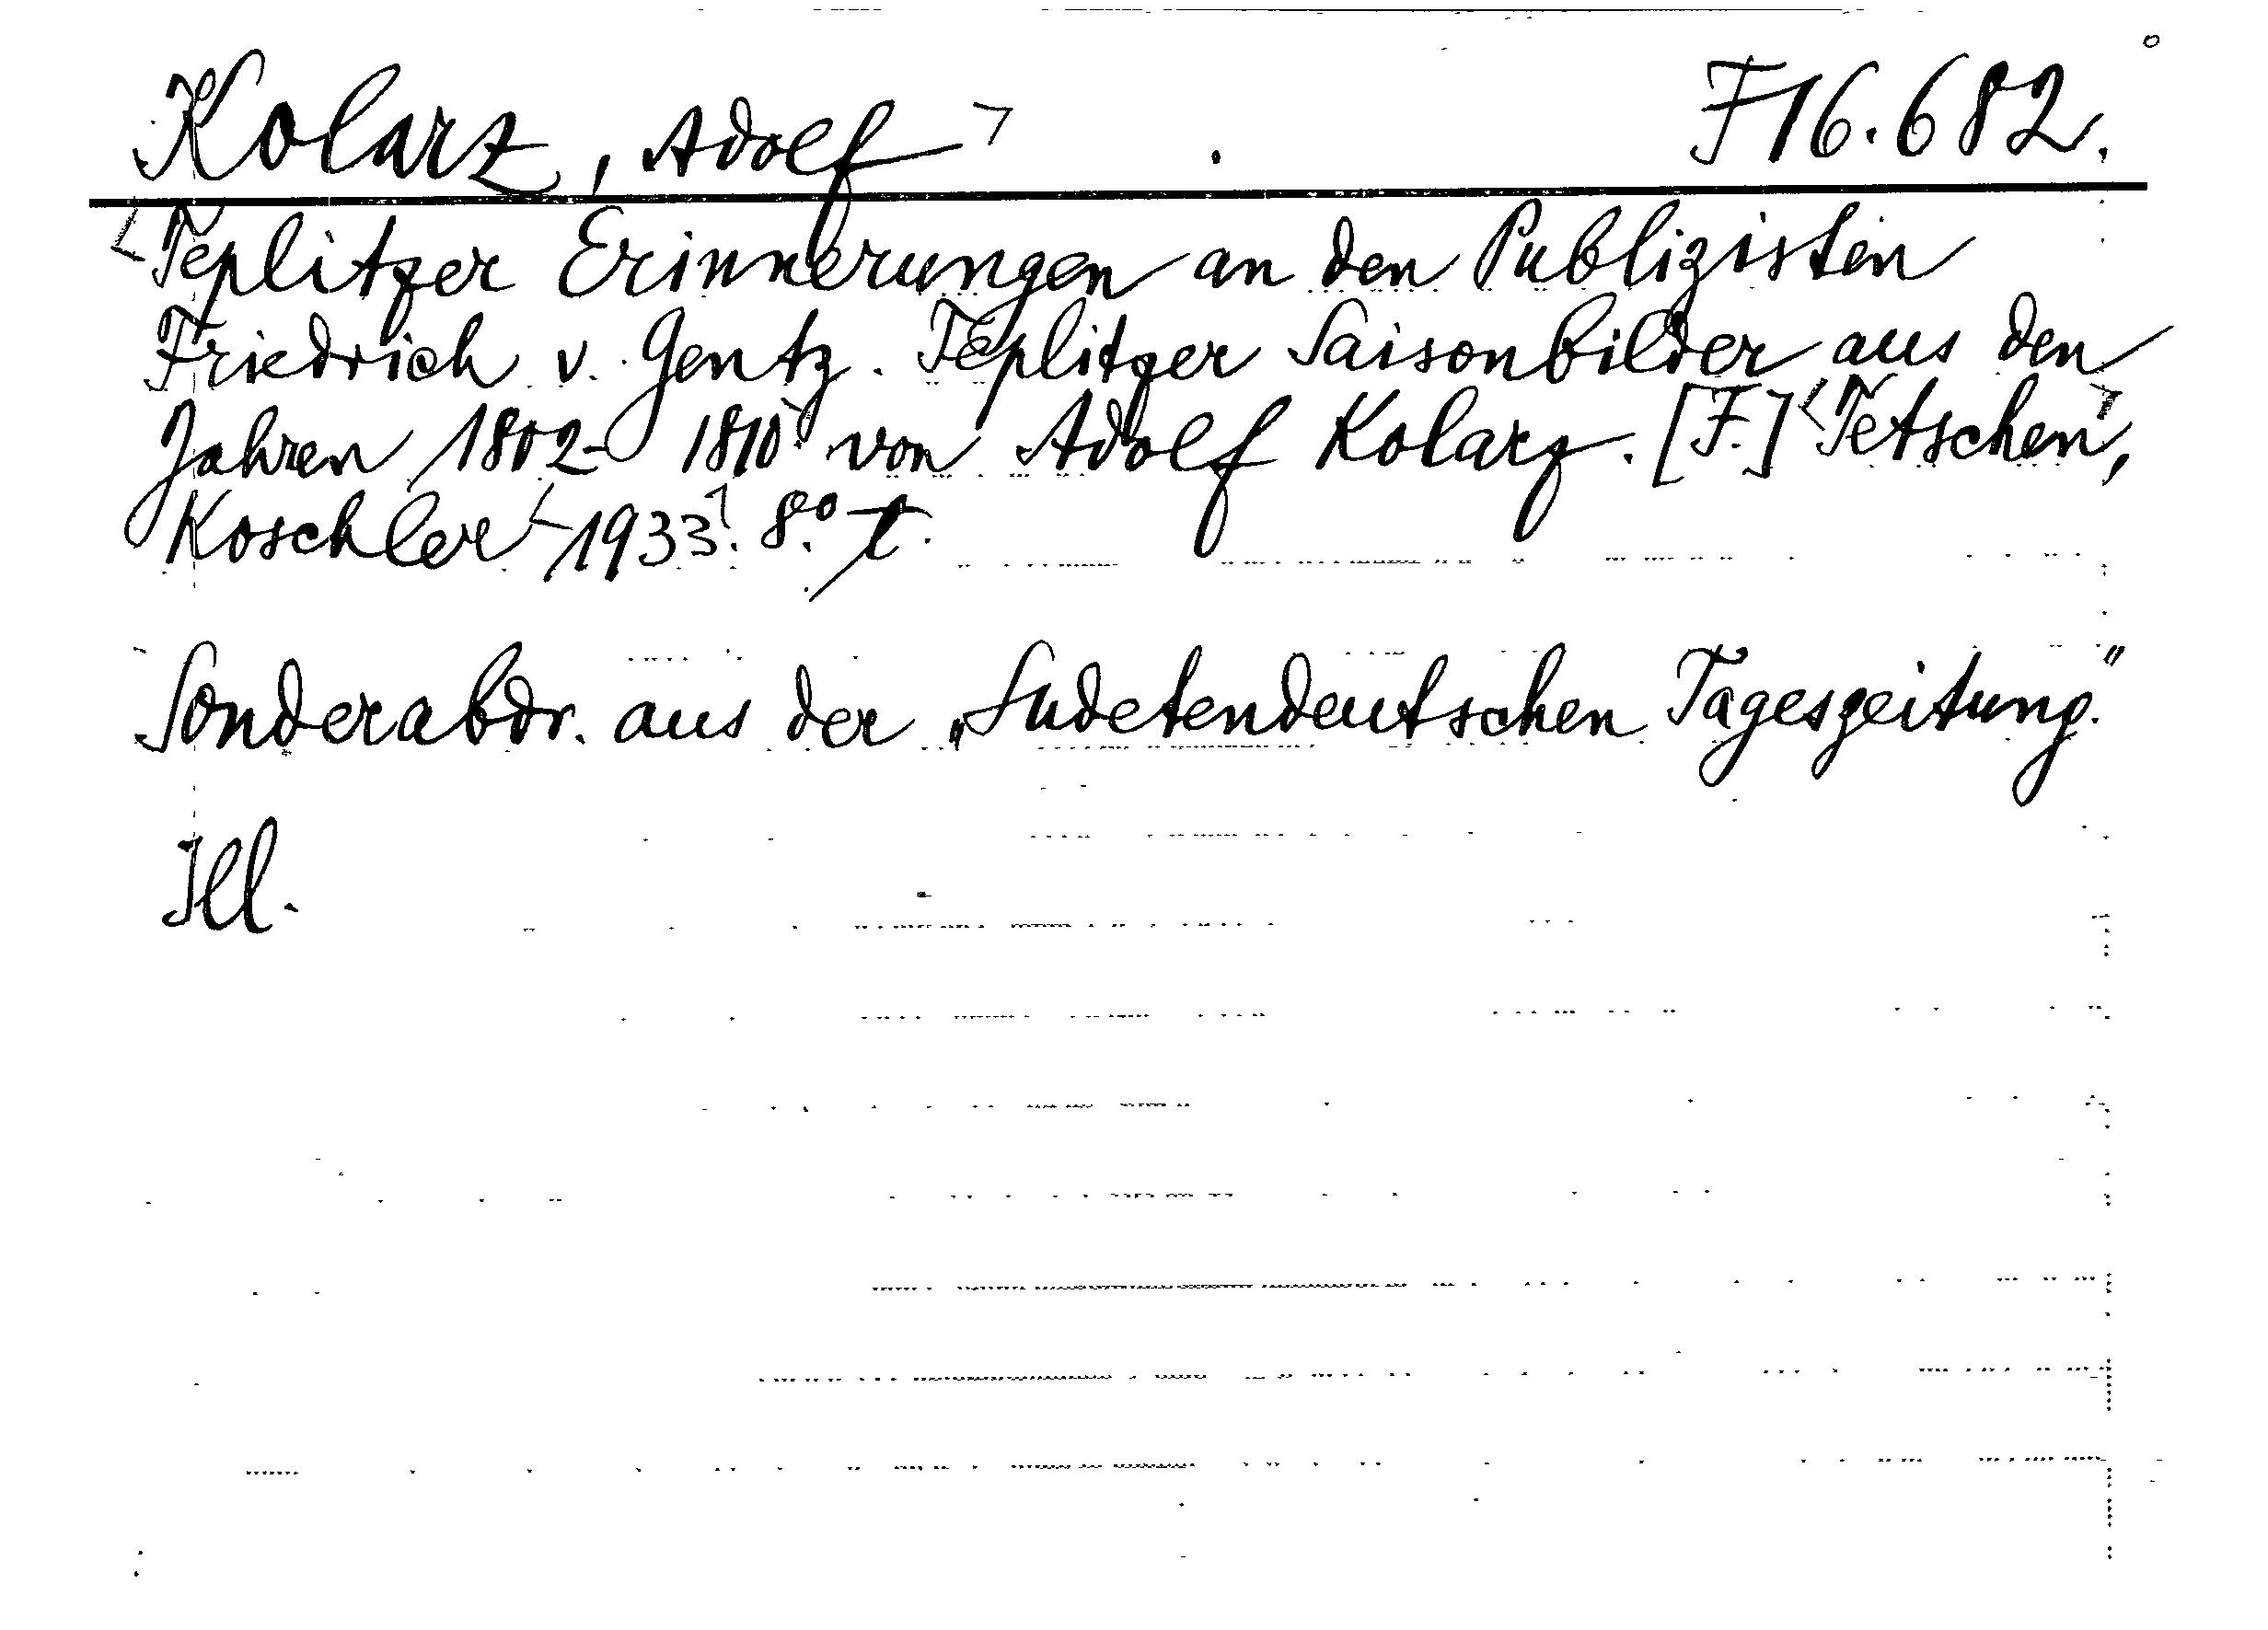 Kolarz, Adolf F 16.682.
Teplitzer Erinnerungen an den Publizisten
Friedrich v. Gentz. Teplitzer Saisonbilder aus den
Jahren 1802-1810 von Adolf Kolarz. [F.] Tetschen,
Koschler 1933. 8.° T.
Sonderabdr. aus der „Sudetendeutschen Tageszeitung."
Ill.